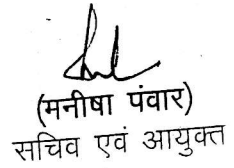 (मनीषा पंवार)
सचिव एवं आयुक्त